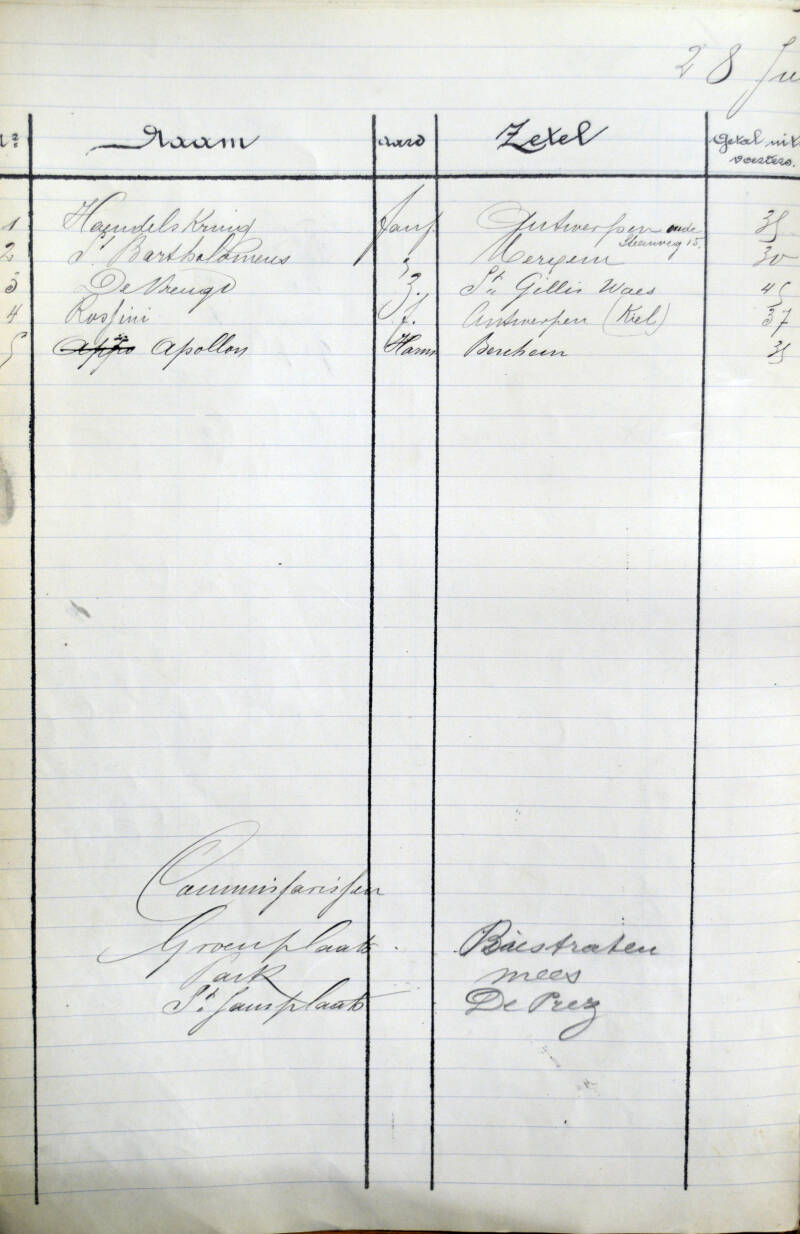 28 Ju
Nº Naam aard Zetel Getal uit
voerders.
1 Haendels Kring fanf. Antwerpen oude
Steenweg 15. 35
2 St Bartholomeus " Merxem 30
3 De Vreugd Z. St Gillis Waes 45
4 Rossini f. Antwerpen (Kiel) 37
5 Apollon Harm Berchem 35
Commissarissen
Groenplaats. Biestraten
Park mees
St Jansplaats De Prez